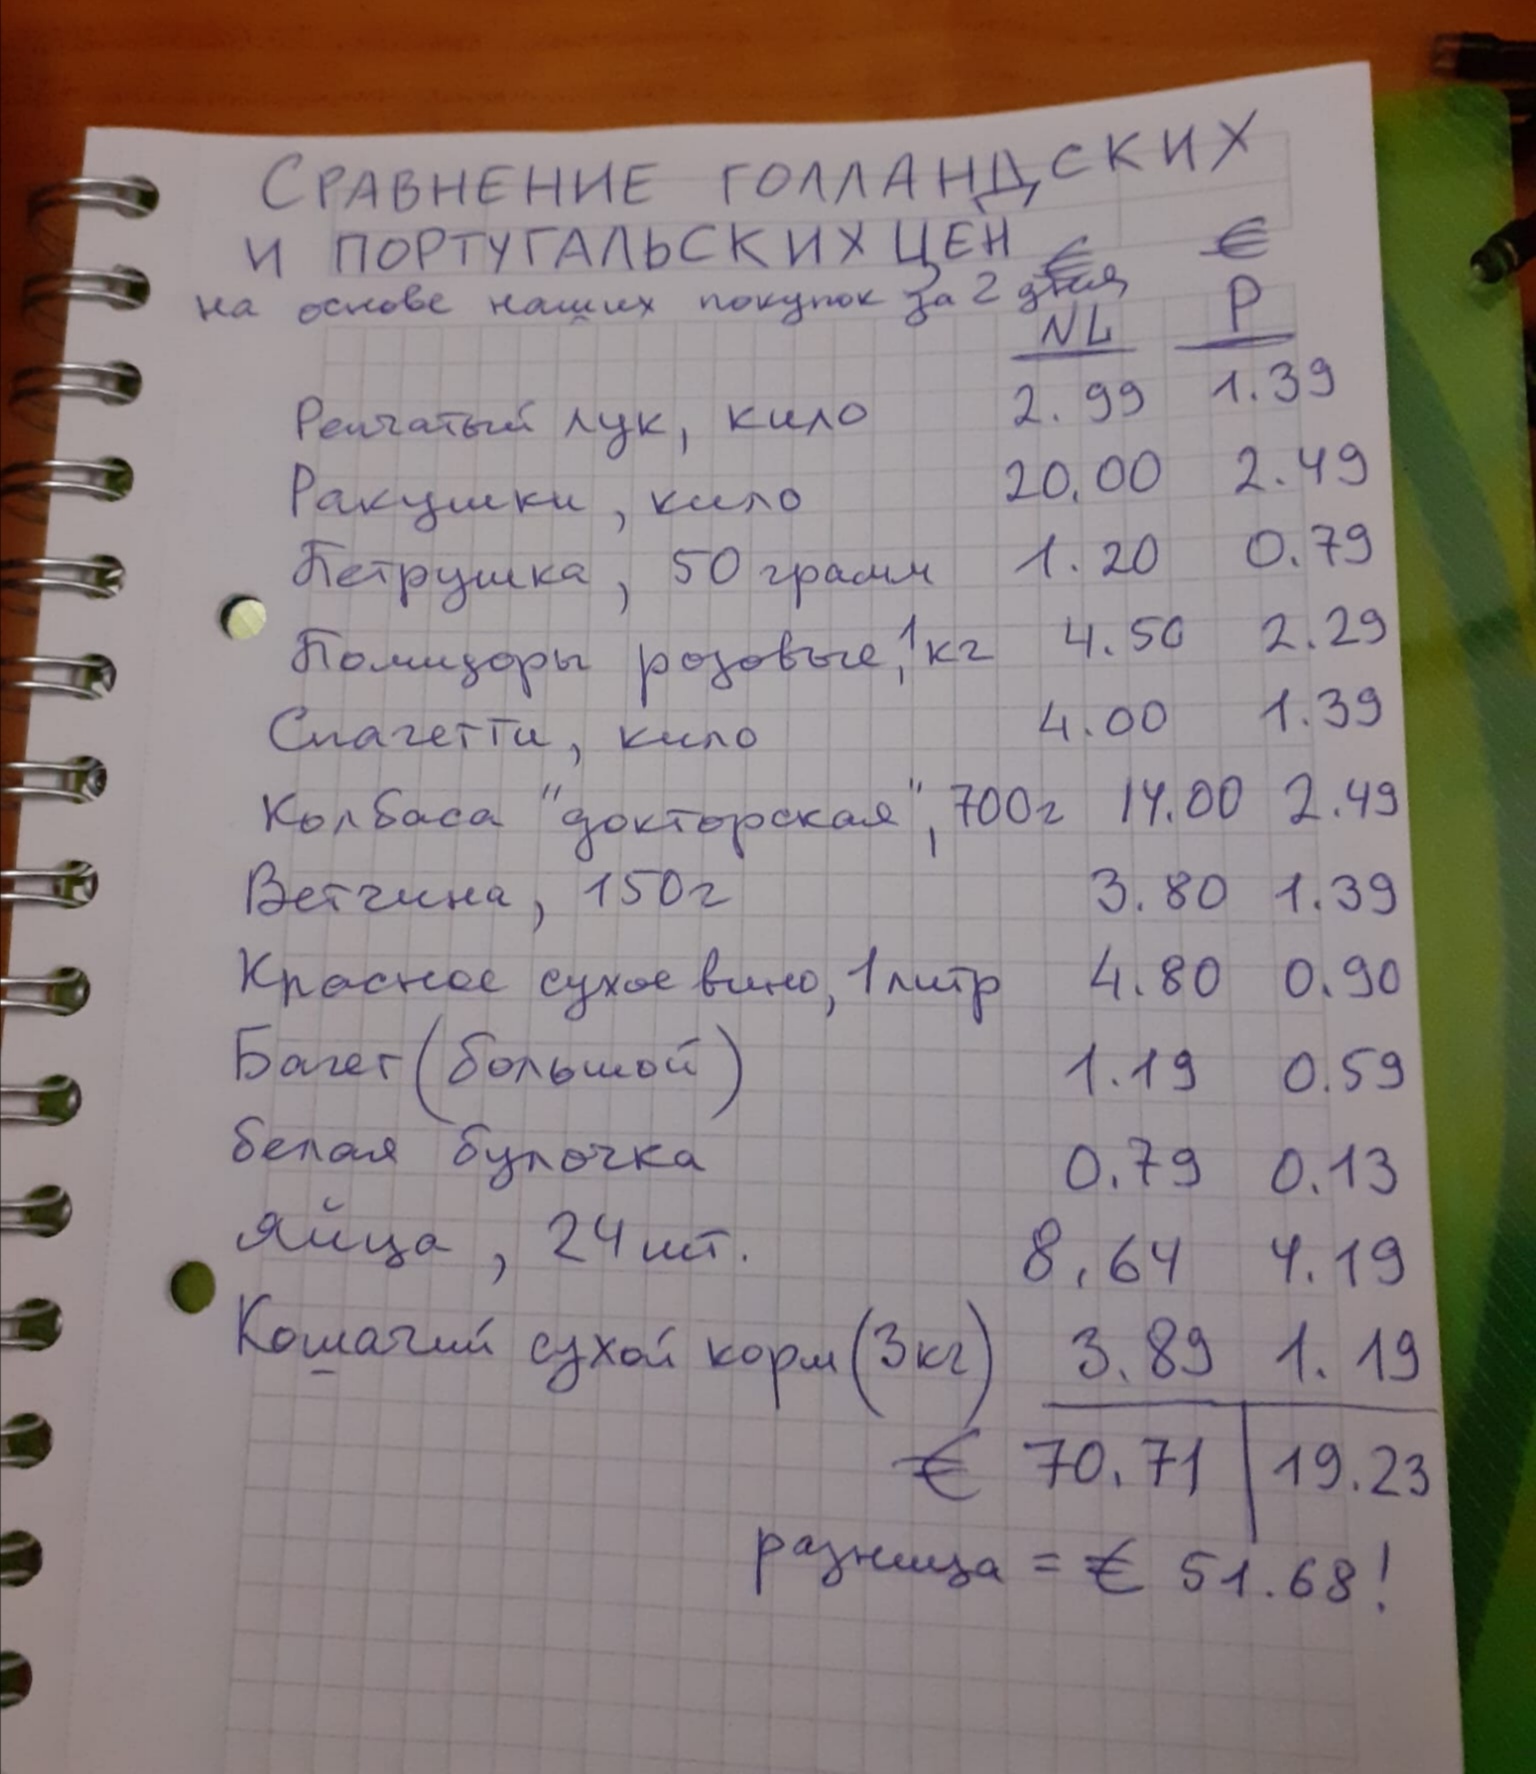 СРАВНЕНИЕ ГОЛЛАНДСКИХ
И ПОРТУГАЛЬСКИХ ЦЕН € €
на основе наших покупок за 2 дня NL P
Репчатый лук, кило 2.99 1.39
Ракушки, кило 20.00 2.49
Петрушка, 50 грамм 1.20 0.79
Помидоры розовые, 1кг 4.50 2.29
Спагетти, кило 4.00 1.39
Колбаса "докторская", 700г 14.00 2.49
Ветчина, 150г 3.80 1.39
Красное сухое вино, 1 литр 4.80 0.90
Багет (большой) 1.19 0.59
белая булочка 0.79 0.13
Яйца, 24 шт. 8,64 4.19
Кошачий сухой корм (3кг) 3.89 1.19
€ 70.71 19.23
разница = € 51.68!